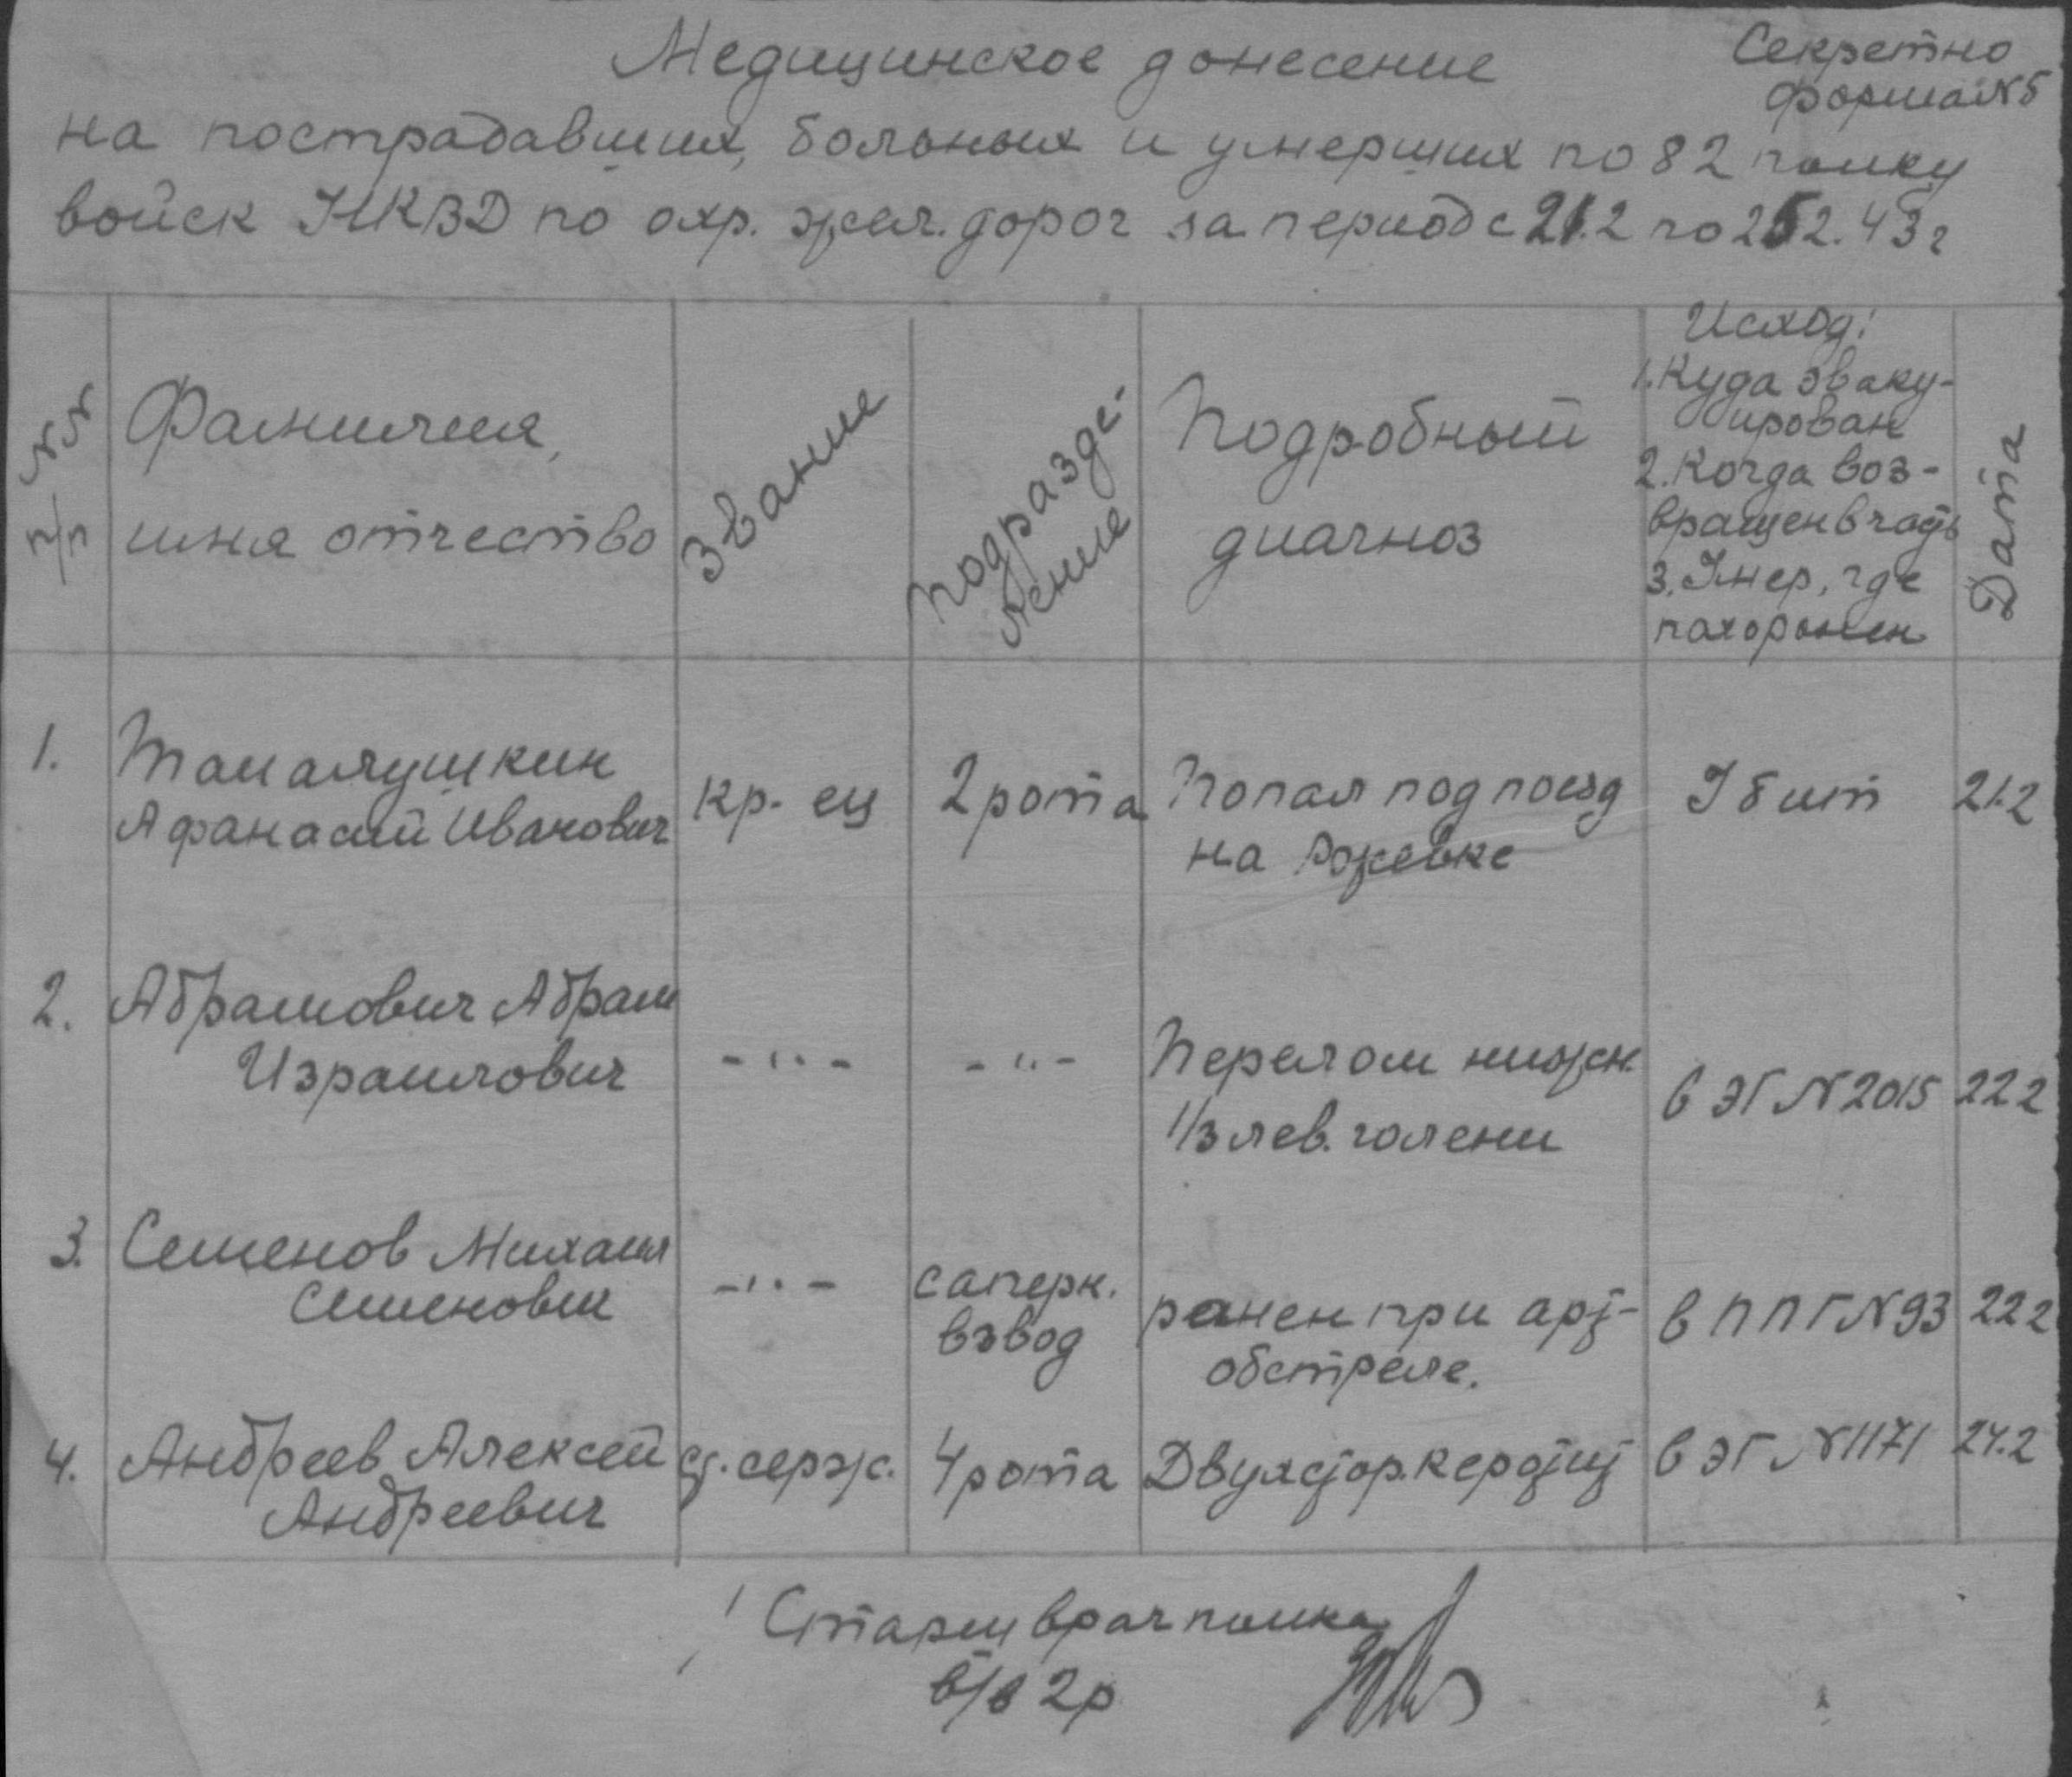 Медицинское донесение
Секретно
форма №5
на пострадавших, больных и умерших по 82 полку
войск НКВД по охр. жел. дорог за период с 21.2 по 25 2. 43 г
№№ п/п
Фамилия,
имя отчество
Звание
Подразде-
ление
Подробный
диагноз
Исход:
1. Куда эваку-
ирован
2. Когда воз-
вращен в часть
3. Умер, где
похоронен
Дата
1. Толмалушкин
Афанасий Иванович
кр-ец
2 рота
Попал под поезд
на Ржевке
Убит
21.2
2. Абрамович Абрам
Израилович
- " -
- " -
Перелом нижн.
1/3 лев. голени
в ЭГ №2015
22 2
3. Семенов Михаил
Семенович
- " -
саперн.
взвод
ранен при арт-
обстреле.
в ППГ №93
22 2
4. Андреев Алексей
Андреевич
ст. серж.
4 рота
Двухстор. кератит
в ЭГ №1171
24.2
Старш врач полка
в/в 2р